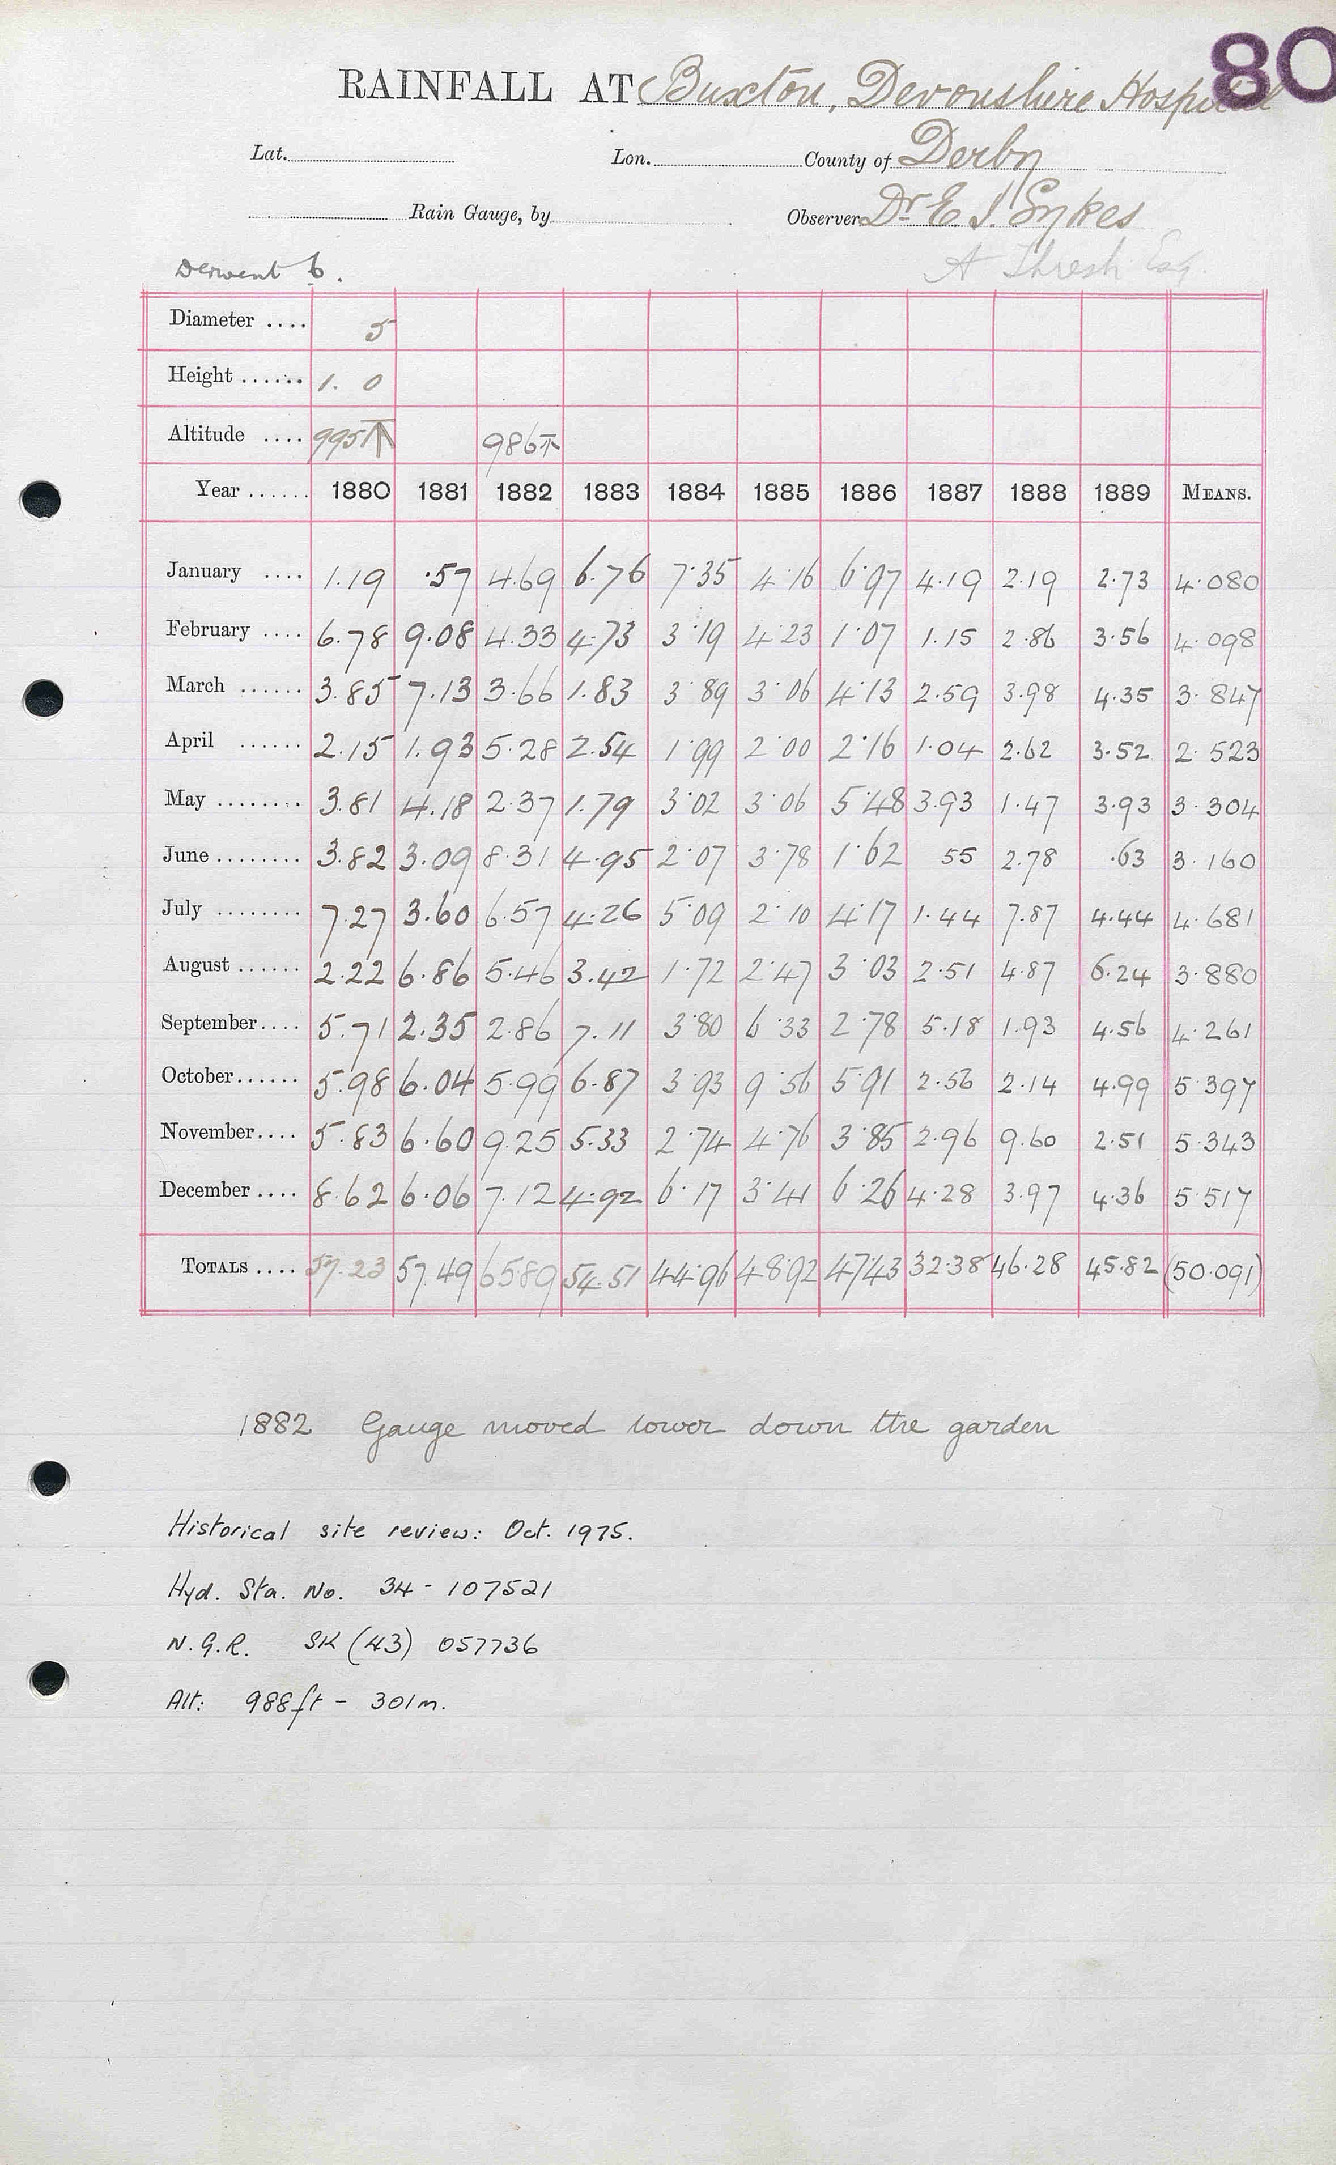 80
RAINFALL AT Buxton, Devonshire Hospital
Lat. Lon. County of Derby
Rain Gauge, by Observer Dr E. J. Sykes
Derwent 6. A Thresh Esq.
Diameter .... 5
Height ...... 1. 0
Altitude .... 995 986
Year ...... 1880 1881 1882 1883 1884 1885 1886 1887 1888 1889 MEANS.
January .... 1.19 .57 4.69 6.76 7.35 4.16 6.97 4.19 2.19 2.73 4.080
February .... 6.78 9.08 4.33 4.73 3.19 4.23 1.07 1.15 2.86 3.56 4.098
March ...... 3.85 7.13 3.66 1.83 3.89 3.06 4.13 2.59 3.98 4.35 3.847
April ...... 2.15 1.93 5.28 2.54 1.99 2.00 2.16 1.04 2.62 3.52 2.523
May ........ 3.81 4.18 2.37 1.79 3.02 3.06 5.48 3.93 1.47 3.93 3.304
June ........ 3.82 3.09 8.31 4.95 2.07 3.78 1.62 55 2.78 .63 3.160
July ........ 7.27 3.60 6.57 4.26 5.09 2.10 4.17 1.44 7.87 4.44 4.681
August ...... 2.22 6.86 5.46 3.42 1.72 2.47 3.03 2.51 4.87 6.24 3.880
September .... 5.71 2.35 2.86 7.11 3.80 6.33 2.78 5.18 1.93 4.56 4.261
October ...... 5.98 6.04 5.99 6.87 3.93 9.56 5.91 2.56 2.14 4.99 5.397
November .... 5.83 6.60 9.25 5.33 2.74 4.76 3.85 2.96 9.60 2.51 5.343
December .... 8.62 6.06 7.12 4.92 6.17 3.41 6.26 4.28 3.97 4.36 5.517
TOTALS .... 57.23 57.49 65.89 54.51 44.96 48.92 47.43 32.38 46.28 45.82 (50.091)
1882 Gauge moved lower down the garden
Historical site review: Oct. 1975.
Hyd. Sta. No. 34 - 107521
N.G.R. SK (43) 057736
Alt: 988ft - 301m.